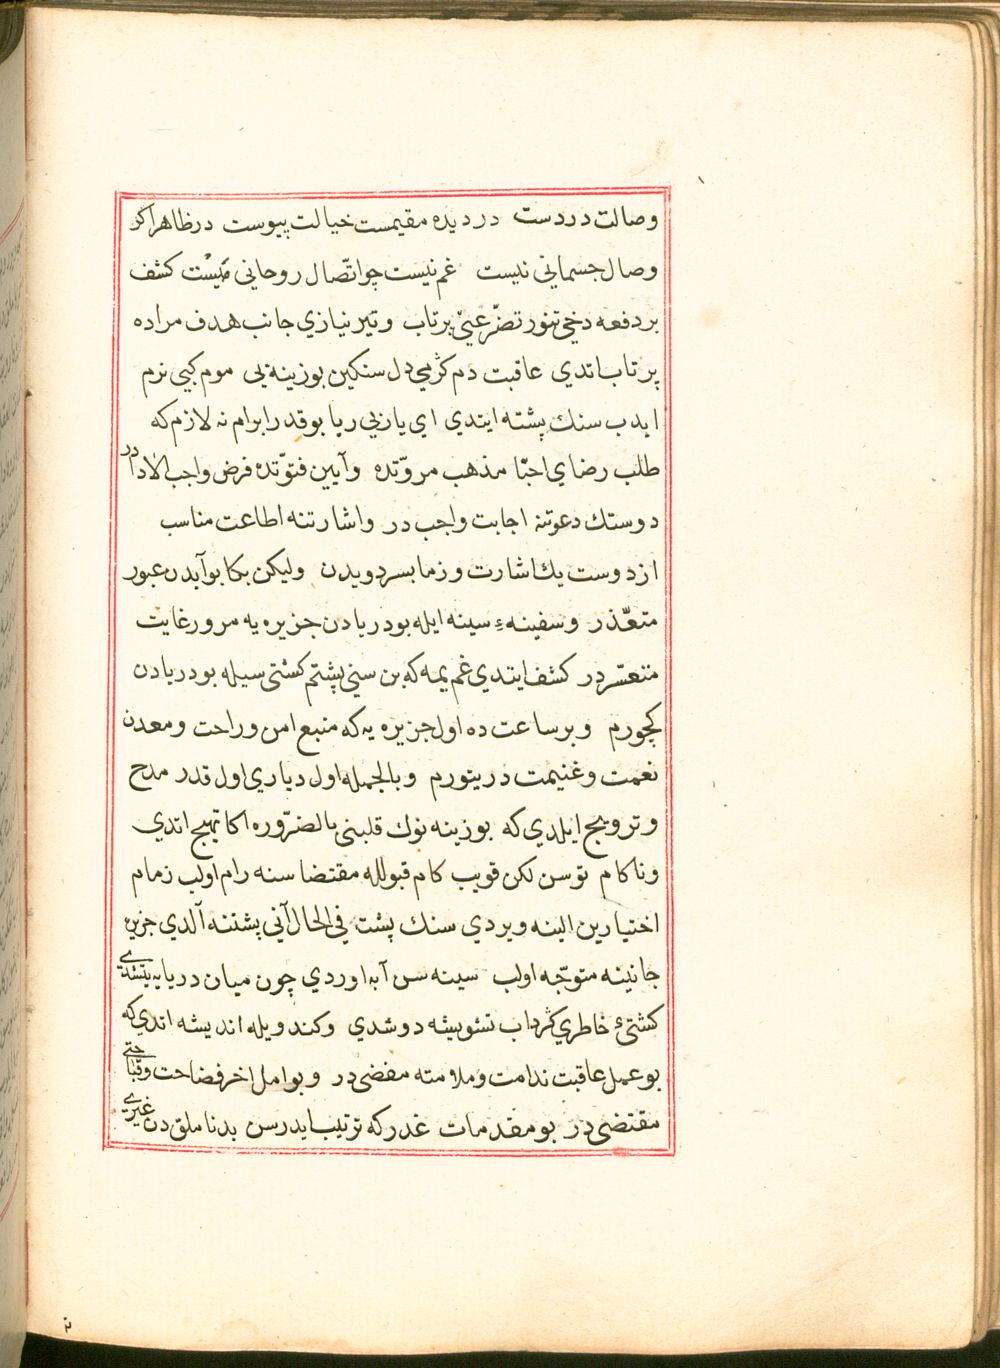 وصالت دردست در دیده مقیمست خیالت پیوست در ظاهر اکر
وصال جسمانی نیست غم نیست چو اتّصال روحانی هیست کشف
بر دفعه دخی تنور تضرّعنی پرتاب و تیر نیازي جانب هدف مراده
پرتاب اتدي عاقبت دم کرمي دل سنکین بوزینه یی موم کبي نرم
ایدب سنك پشته ایتدي اي یار بي ریا بو قدر ابرام نه لازم که
طلب رضاي احبّا مذهب مروّتده و آیین فتوّتده فرض واجب الادادر
دوستك دعوتنه اجابت واجب در و اشارتنه اطاعت مناسب
از دوست یك اشارت و زما بسر دویدن ولیکن بکا بو آبدن عبور
متعذّر و سفینهٔ سینه ایله بو دریادن جزیره یه مرور غایت
متعسّر در کشف ایتدي غم یمه که بن سني پشتم کشتی سیله بو دریادن
کچورم و بر ساعت ده اول جزیره یه که منبع امن و راحت و معدن
نعمت و غنیمت در یتورم و بالجمله اول دیاري اول قدر مدح
و ترویج ایلدي که بوزینه نوك قلبنی بالضرّوره اکا تهییج اتدي
و ناکام توسن لکن قویب کام قبولله مقتضاسنه رام اولب زمام
اختیارین الینه ویردي سنك پشت في الحال آني پشتنه آلدي جزیره
جانبنه متوجّه اولب سینه سن آبه اوردي چون میان دریایه یتشدي
کشتئ خاطري کرداب تشویشه دوشدي و کندویله اندیشه اتدي که
بو عمل عاقبت ندامت و ملامته مفضی در و بو امل اخر فضاحت و قباحتي
مقتضی در بو مقدمات غدر که ترتیب ایدرسن بدناملق دن غیري